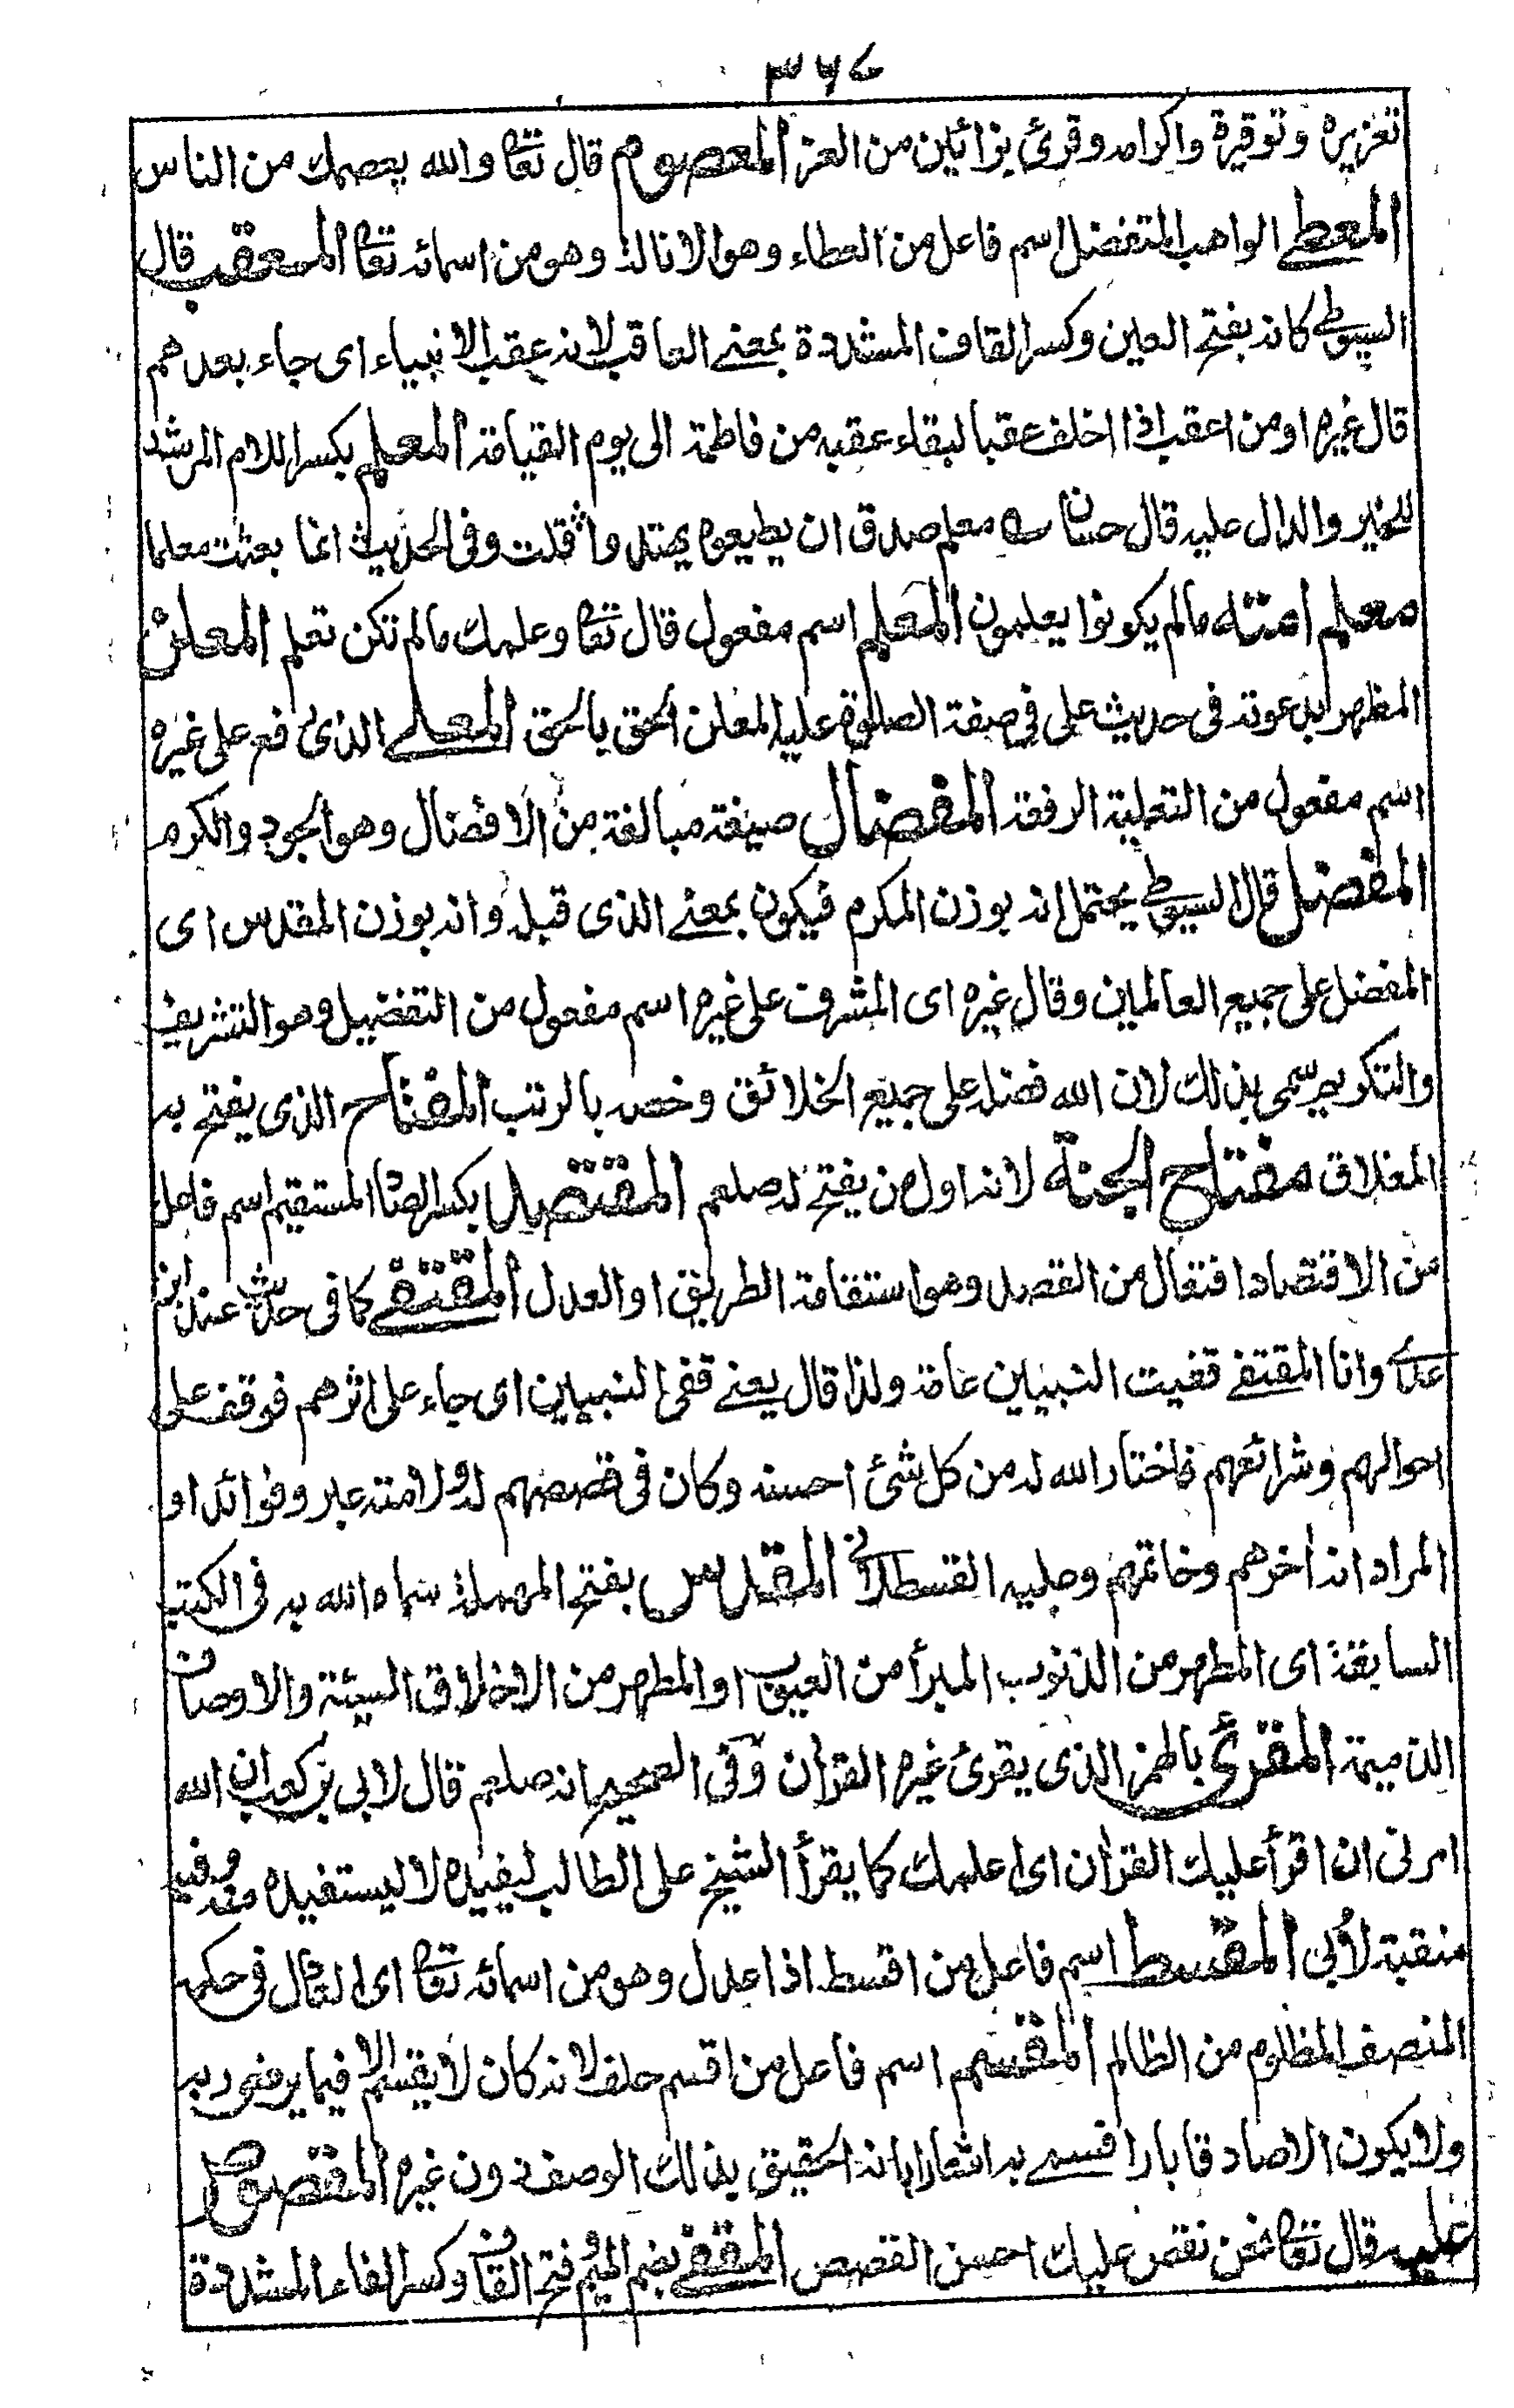 ٣٦٧
تعزيره وتوقيره واكرامه وقرئ بزائين من العز المعصوم قال تعا والله يعصمك من الناس
المعطے الواهب المتفضل اسم فاعل من العطاء وهو الانالة وهو من اسمائه تعا المعقب قال
السيوطے كانه بفتح العين وكسر القاف المشددة بمعنے العاقب لانه عقب الانبياء اى جاء بعدهم
قال غيره او من اعقب اذا اخلف عقبا لبقاء عقبه من فاطمة الى يوم القيامة المعلم بكسر اللام المرشد
للخير والدال عليه قال حسان معلم صدق ان يطيعوه يهتدوا قلت وفى الحديث انما بعثت معلما
معلم امته مالم يكونوا يعلمون المعلم اسم مفعول قال تعا وعلمك مالم تكن تعلم المعلن
المظهر لدعوته فى حديث على فى صفة الصلوة عليه المعلن الحق بالحق المعلے الذى رفع على غيره
اسم مفعول من التعلية الرفعة المفضال صيغة مبالغة من الافضال وهو الجود والكرم
المفضل قال السيوطے يحتمل انه بوزن المكرم فيكون بمعنے الذى قبله وانه بوزن المقدس اى
المفضل على جميع العالمين وقال غيره اى المشرف على غيره اسم مفعول من التفضيل وهو التشريف
والتكريم سمى بذلك لان الله فضله على جميع الخلائق وخصه بالرتب المفتاح الذى يفتح به
المغلاق مفتاح الجنة لانه اول من يفتح له صلعم المقتصد بكسر الصاد المستقيم اسم فاعل
من الاقتصاد افتعال من القصد وهو استقامة الطريق او العدل المقتفے كما فى حديث عند ابن
عدے وانا المقتفے قفيت النبيين عامة ولذا قال يعنے قفى النبيين اى جاء على اثرهم فوقف على
احوالهم وشرائعهم فاختار الله له من كل شئ احسنه وكان فى قصصهم له ولامته عبر وفوائد او
المراد انه اخرهم وخاتمهم وجليه القسطلانے المقدس بفتح المهملة سماه الله به فى الكتب
السابقة اى المطهر من الذنوب المبرأ من العيوب او المطهر من الاخلاق السيئة والاوصاف
الذميمة المقرئ بالهمز الذى يقرئ غيره القرآن وفى الصحيح انه صلعم قال لابى بن كعب ان الله
امرنى ان اقرأ عليك القرآن اى اعلمك كما يقرأ الشيخ على الطالب ليفيده لا ليستفيد منه وفيه
منقبة لأبى المقسط اسم فاعل من اقسط اذا عدل وهو من اسمائه تعا اى العادل فى حكمه
المنصف المظلوم من الظالم المقسم اسم فاعل من اقسم حلف لانه كان لا يقسم الا فيما يرضى ربه
ولا يكون الا صادقا بارا قسمے به اشعارا بانه الحقيق بذلك الوصف دون غيره المقصوص
عليه قال تعا نحن نقص عليك احسن القصص المقفے بضم الميم وفتح القاف وكسر الفاء المشددة